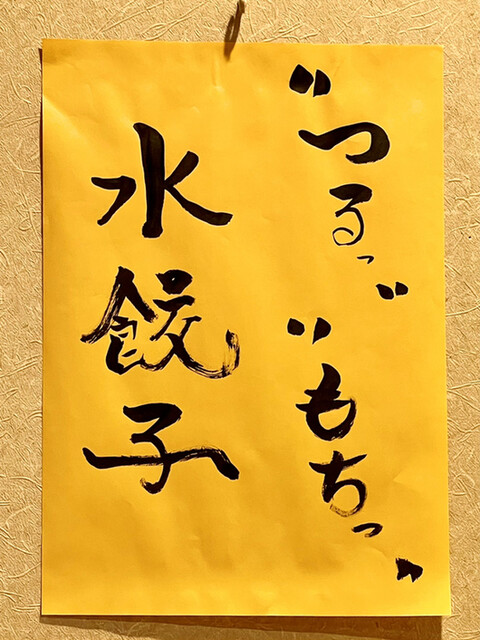 "つるっ" "もちっ"
水餃子